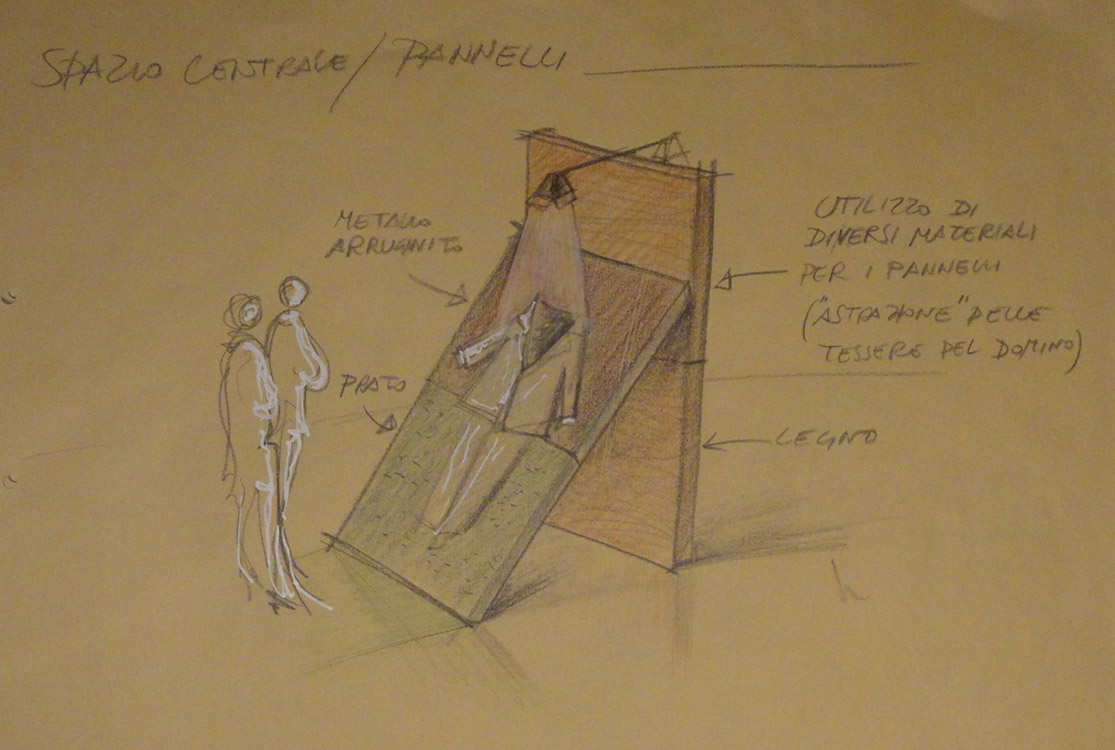 SPAZIO CENTRALE / PANNELLI
METALLO
ARRUGNITO
PRATO
UTILIZZO DI
DIVERSI MATERIALI
PER I PANNELLI
("ASTRAZIONE" DELLE
TESSERE DEL DOMINO)
LEGNO